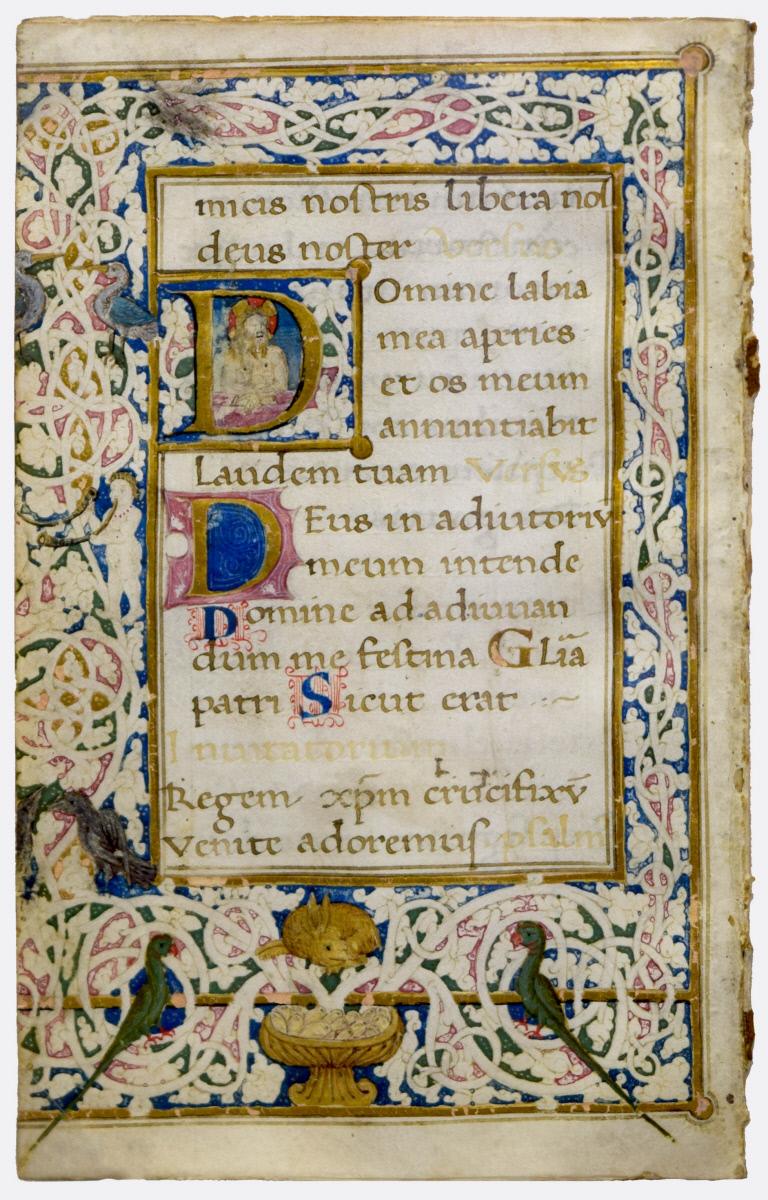 micis nostris libera nos
deus noster Versus
Domine labia
mea aperies
et os meum
annuntiabit
Laudem tuam Versus
Deus in adiutoriū
meum intende
Domine ad adiuuan
dum me festina Gliā
patri Sicut erat
Inuitatorium
Regem xp̄m crucifixū
Venite adoremus psalm